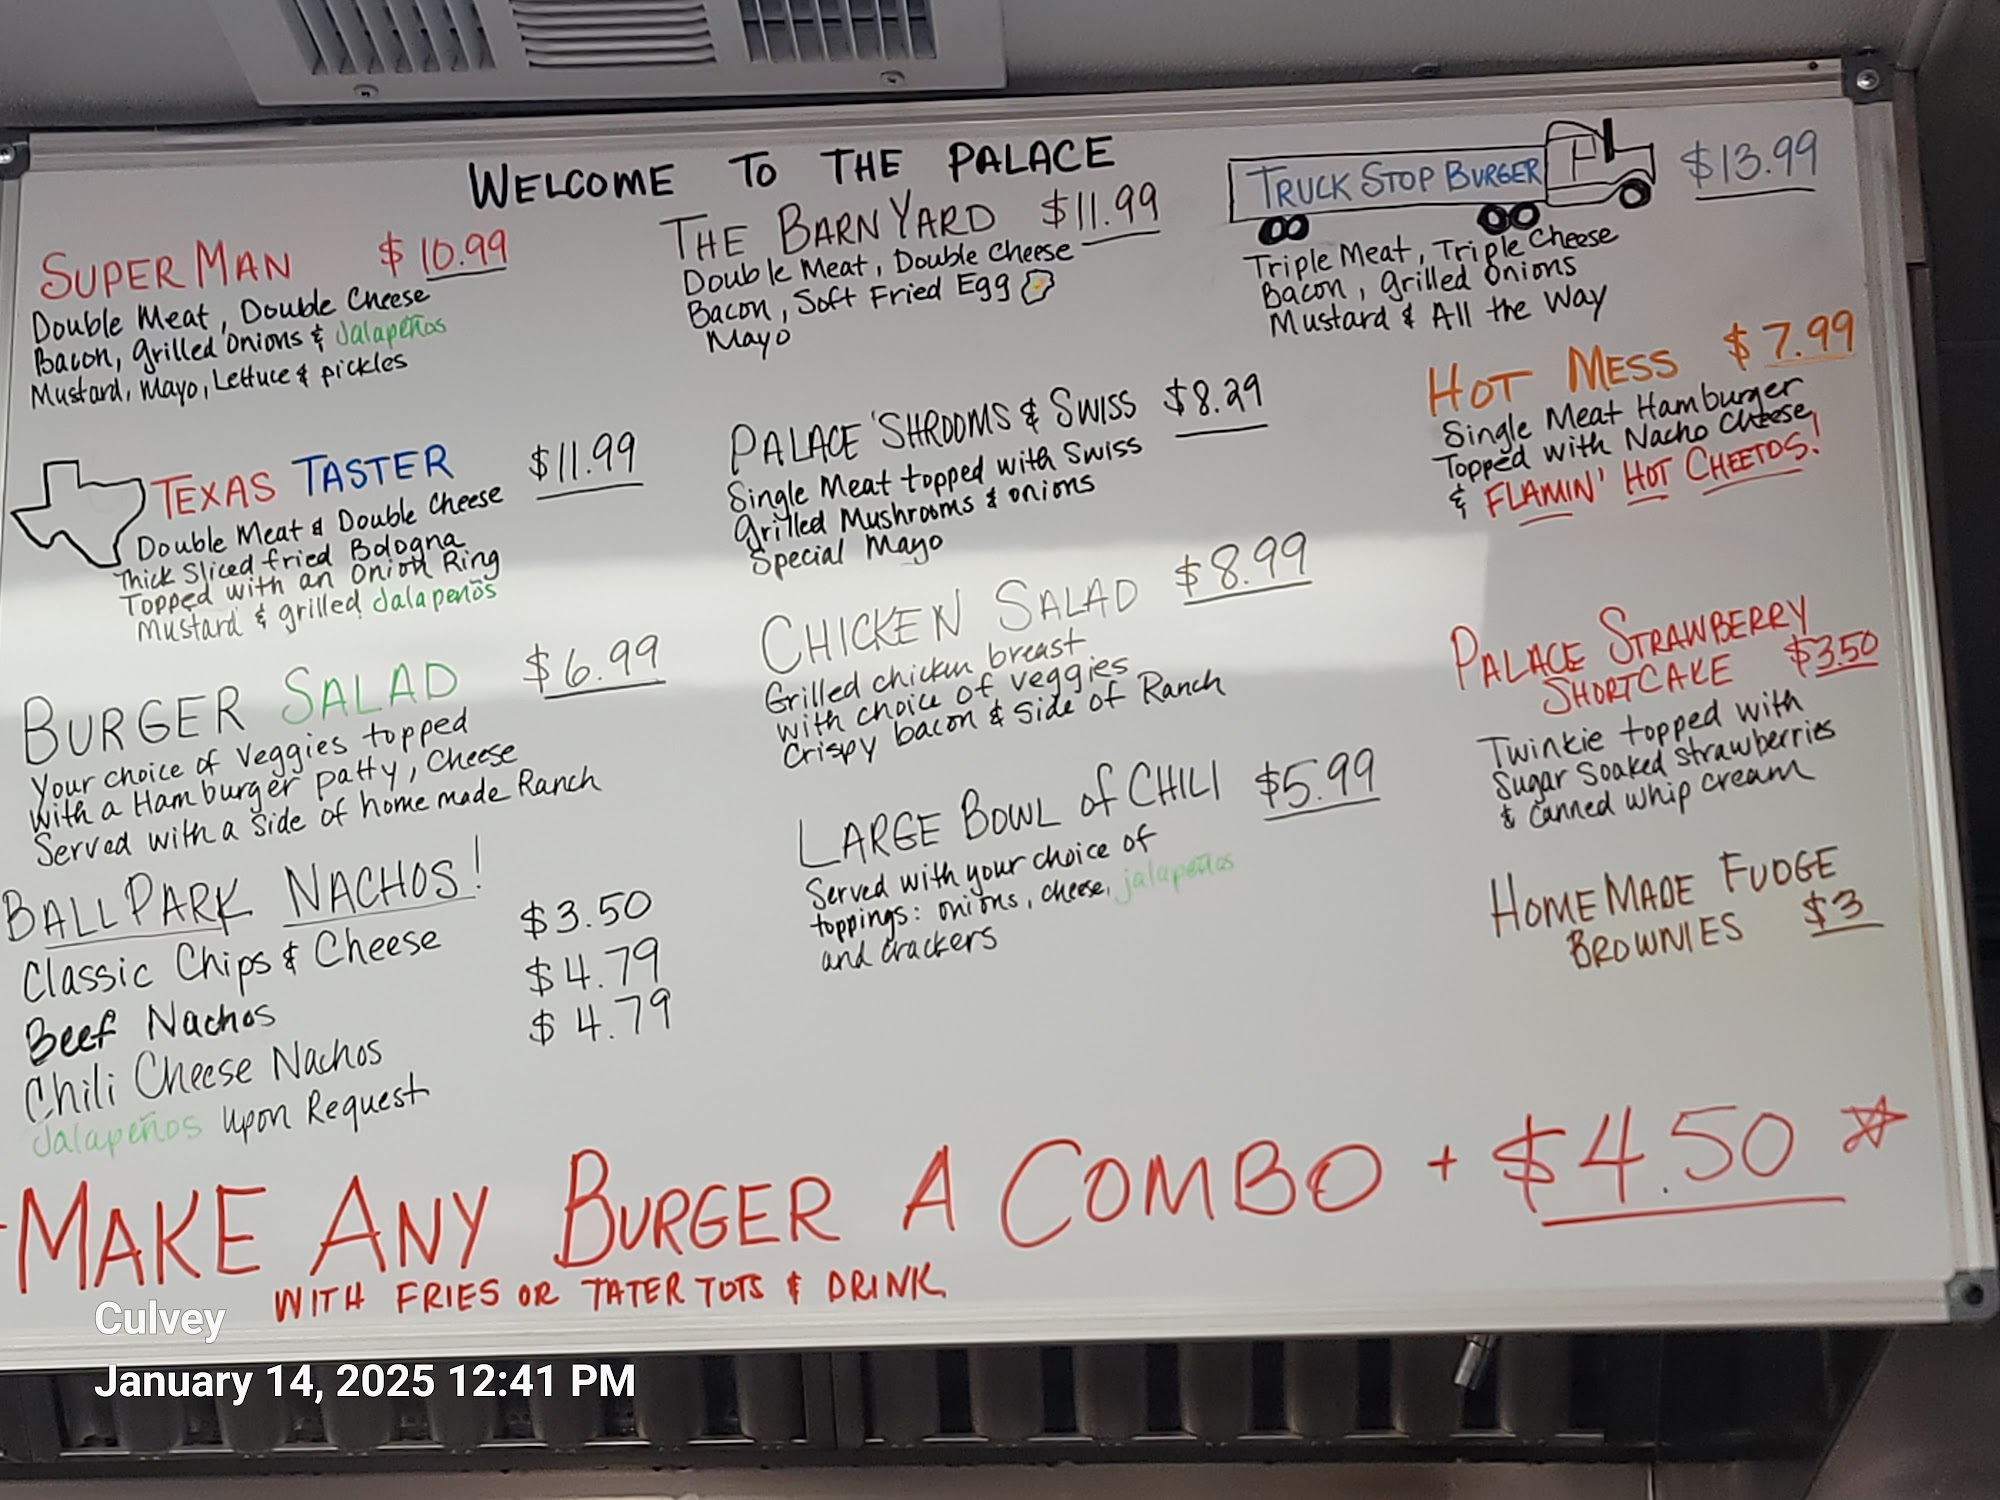 WELCOME TO THE PALACE
SUPER MAN $10.99
Double Meat, Double Cheese
Bacon, grilled onions & Jalapeños
Mustard, Mayo, Lettuce & pickles
TEXAS TASTER $11.99
Double Meat & Double Cheese
Thick Sliced fried Bologna
Topped with an Onion Ring
Mustard & grilled Jalapenõs
BURGER SALAD $6.99
Your choice of Veggies topped
with a Hamburger patty, Cheese
Served with a side of home made Ranch
BALLPARK NACHOS!
Classic Chips & Cheese $3.50
Beef Nachos $4.79
Chili Cheese Nachos $4.79
Jalapeños Upon Request
THE BARNYARD $11.99
Double Meat, Double Cheese
Bacon, Soft Fried Egg
Mayo
PALACE 'SHROOMS & SWISS $8.29
Single Meat topped with Swiss
Grilled Mushrooms & onions
Special Mayo
CHICKEN SALAD $8.99
Grilled chicken breast
with choice of veggies
Crispy bacon & side of Ranch
LARGE BOWL of CHILI $5.99
Served with your choice of
toppings: onions, cheese, jalapeños
and crackers
TRUCK STOP BURGER $13.99
Triple Meat, Triple Cheese
Bacon, grilled Onions
Mustard & All the Way
HOT MESS $7.99
Single Meat Hamburger
Topped with Nacho Cheese
& FLAMIN' HOT CHEETOS!
PALACE STRAWBERRY
SHORTCAKE $3.50
Twinkie topped with
Sugar Soaked Strawberries
& Canned whip cream
HOMEMADE FUDGE
BROWNIES $3
MAKE ANY BURGER A COMBO + $4.50
WITH FRIES OR TATER TOTS & DRINK
Culvey
January 14, 2025 12:41 PM